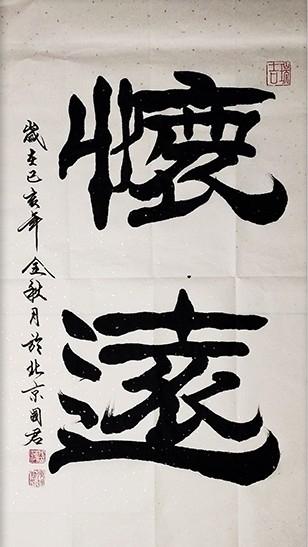 懷遠
歲在己亥年金秋月於北京國君